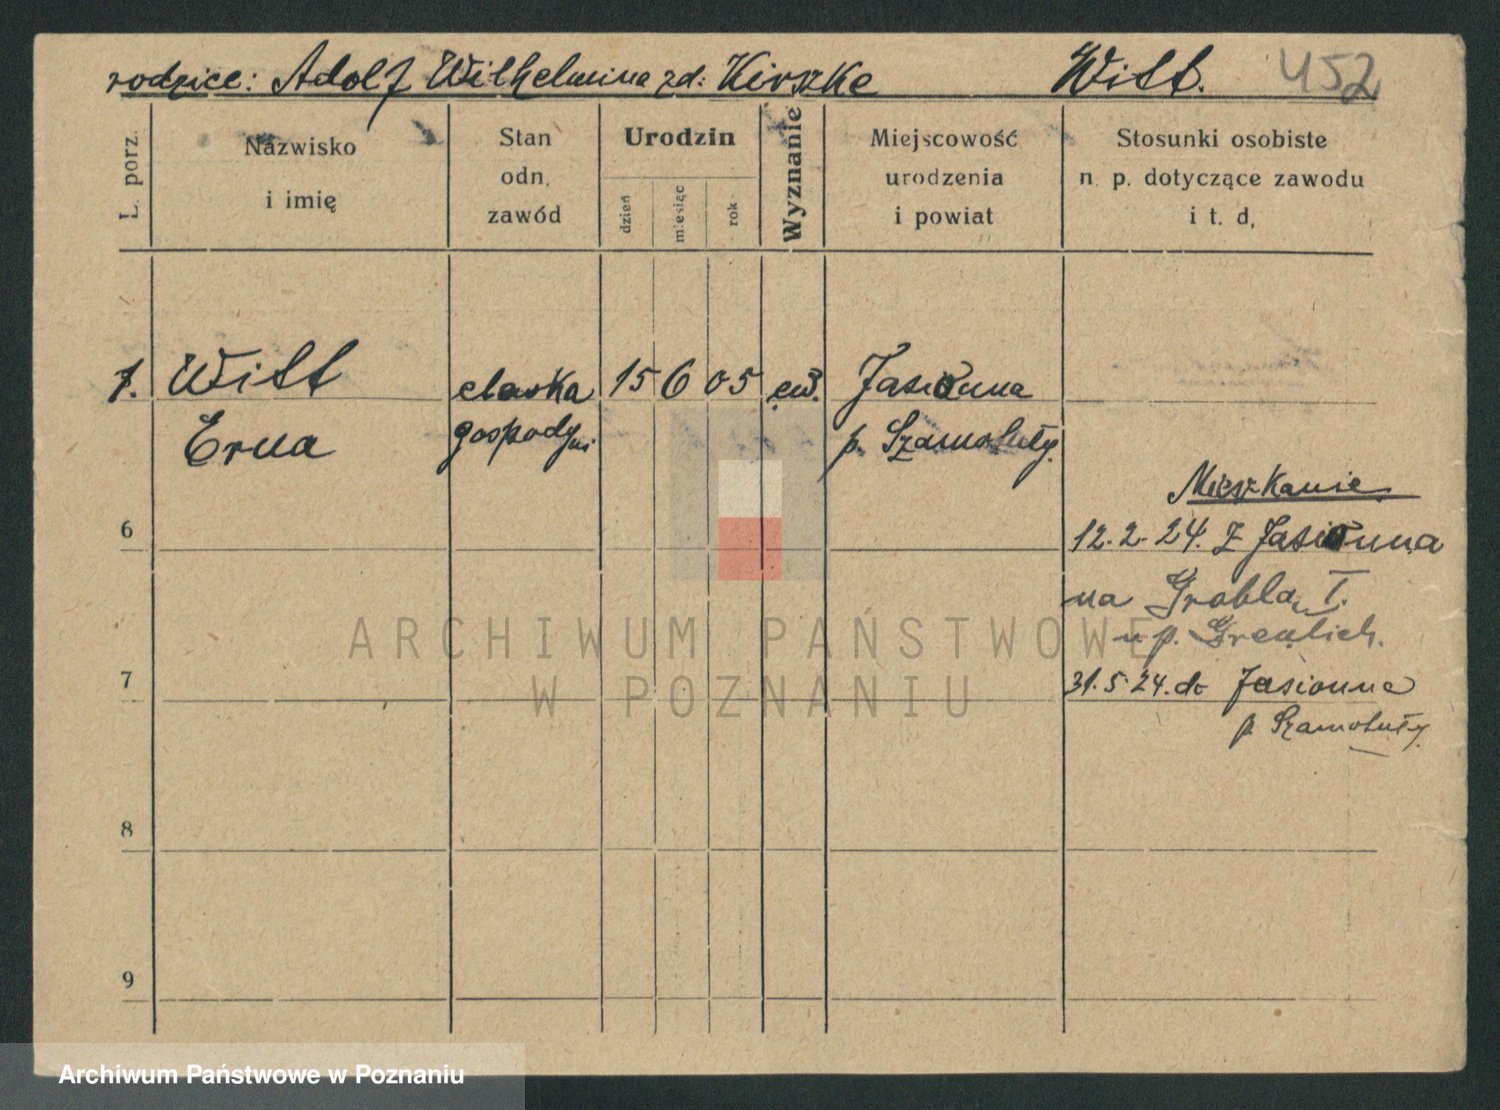 rodzice: Adolf Wilhelmina zd: Kirszke Witt. 452
L. porz.
Nazwisko
i imię
Stan
odn.
zawód
Urodzin
dzień
miesiąc
rok
Wyznanie
Miejscowość
urodzenia
i powiat
Stosunki osobiste
n. p. dotyczące zawodu
i t. d,
1. Witt 15 6 05 Jasionna
Erna gospodyni p. Szamotuły.
Mieszkanie
6
12.2.24. z Jasionna
na Grobla I.
u p. Greulich.
7
31.5.24. do Jasionna
p. Szamotuły.
8
9
ARCHIWUM PAŃSTWOWE
W POZNANIU
Archiwum Państwowe w Poznaniu